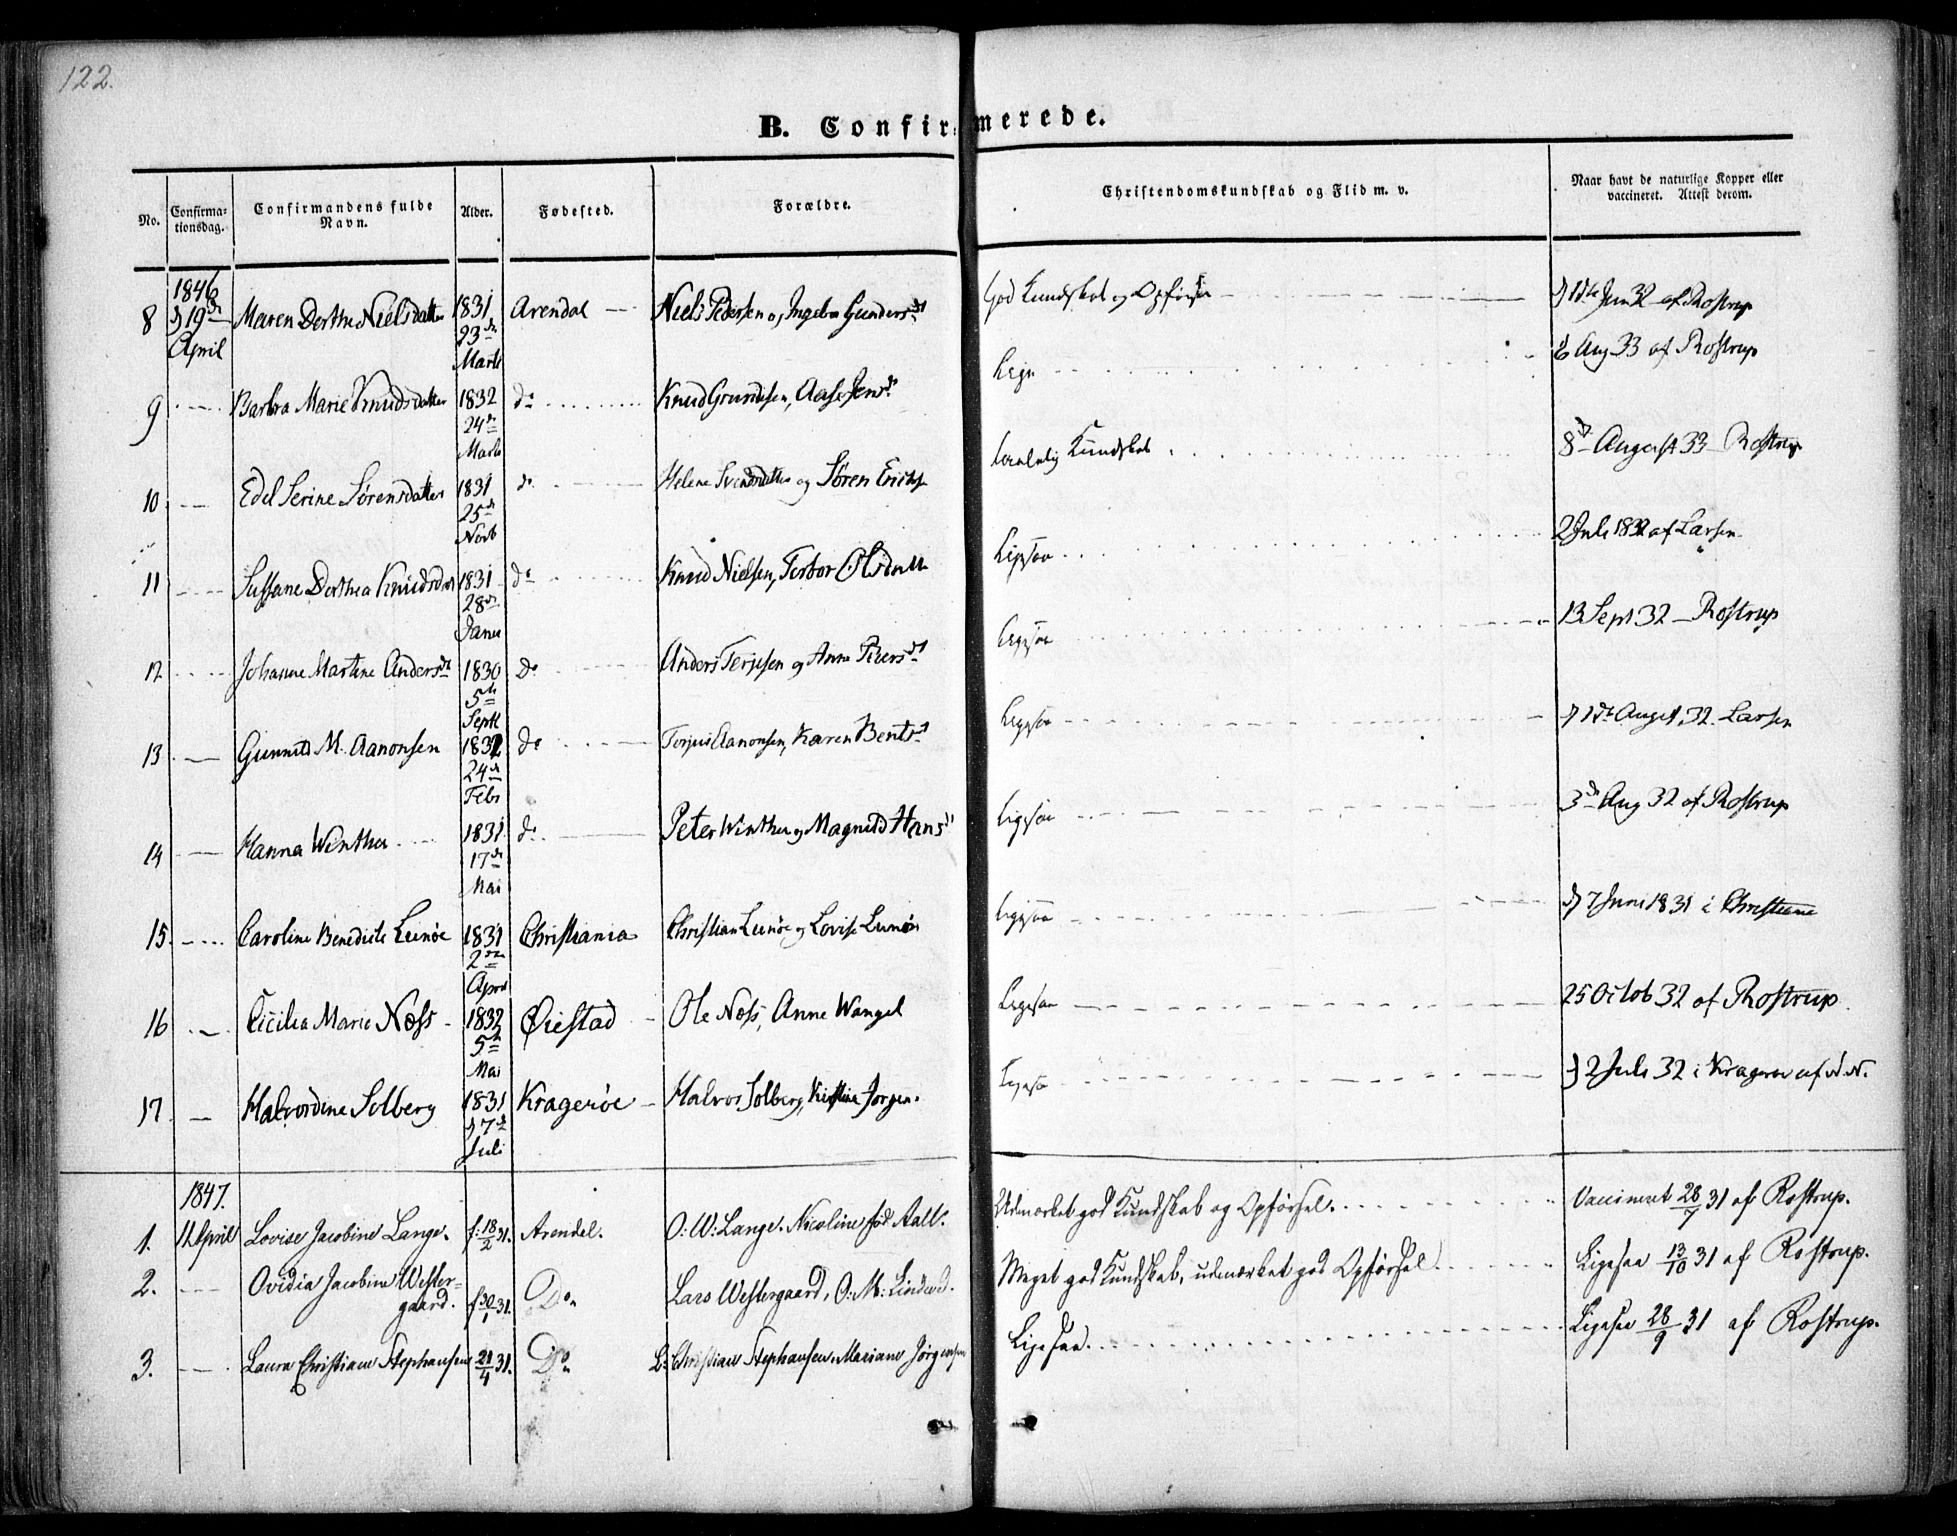 122.
B. Confirmerede.
No. Confirmationsdag. Confirmandens fulde Navn. Alder. Fødested. Forældre. Christendomskundskab og Flid m. v. Naar havt de naturlige Kopper eller vaccineret. Attest derom.
1846
8 d 19de April Maren Dorthe Nielsdatter 1831 23de Marts Arendal Niels Pedersen og Ingebor Gundersdt God Kundskab og Opførsel d 1ste Jun 32 af Rostrup
9 Barbra Marie Knudsdatter 1832 24de Marts do Knud Grundesen, Aase Jensdt Lign 6 Aug 33 af Rostrup
10 Edel Serine Sørensdatter 1831 25de Novb do Helene Svendsdatter og Søren Erichs Kundskab 8de August 33 Rostrup
11 Sussane Dorthea Knudsdat 1831 28de Janu do Knud Nielsen, Torbor Olsdatt Ligesaa 2 Juli 1832 af Larsen
12 Johanne Martine Andersdt 1830 5te Septb do Anders Terjesen og Anne Peersdt Ligesaa 13 Sept 32 Rostrup
13 Gunnild M. Aanonsen 1832 24de Feb do Torjus Aanonsen, Karen Bentsdt Ligesaa d 1ste Augst. 32 Larsen
14 Hanna Winther 1831 17de Mai do Peter Winther og Magnild Hansdt Ligesaa 3de Aug 32 af Rostrup
15. Caroline Benedicte Lunøe 1831 2den April Christiania Christian Lunøe og Lovise Lunøe Ligesaa d 7 Juni 1831 i Christiania
16 Cicilia Marie Næss 1832 5te Mai Øiestad Ole Næss, Anne Wangel Ligesaa 25 Octob 32 af Rostrup.
17. Halvordine Solberg 1831 d 7de Juli Kragerøe Halvor Solberg, Kirstine Jørgen. Ligesaa d 2 Juli 32 i Kragerøe af N.N.
1847.
1. 11 April Lovise Jacobine Lange. f: 18/2 31. Arendel. O: W: Lange. Nicoline fød Aall. Udmærket god Kundskab og Opførsel. Vaccineret 28/7 31 af Rostrup.
2. Ovidia Jacobine Westergaard. f 30/1 31. Do Lars Westergaard, O: M: Lindved. Meget god Kundskab, udmærket god Opførsel Ligesaa 13/10 31 af Rostrup.
3. Laura Christiane Stephansen 21/4 31. Do L: Christian Stephansen. Mariane Jørgensen Ligesaa. Ligesaa 28/9 31 af Rostrup.